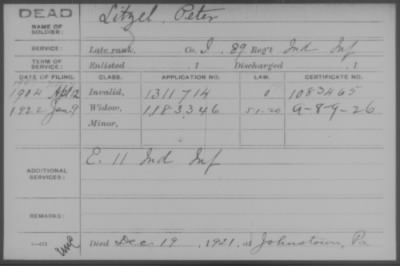 DEAD
NAME OF SOLDIER: Litzel, Peter
SERVICE: Late rank, Co. I, 89 Reg't Ind Inf
TERM OF SERVICE: Enlisted , 1 Discharged , 1
DATE OF FILING. CLASS. APPLICATION NO. LAW. CERTIFICATE NO.
1904 Apl 2 Invalid, 1311714 0 1083465
1922 Jan 9 Widow, 1183346 5-1-20 a-8-9-26
Minor,
ADDITIONAL SERVICES: E. 11 Ind Inf
REMARKS:
Died Dec. 19, 1921, at Johnstown, Pa